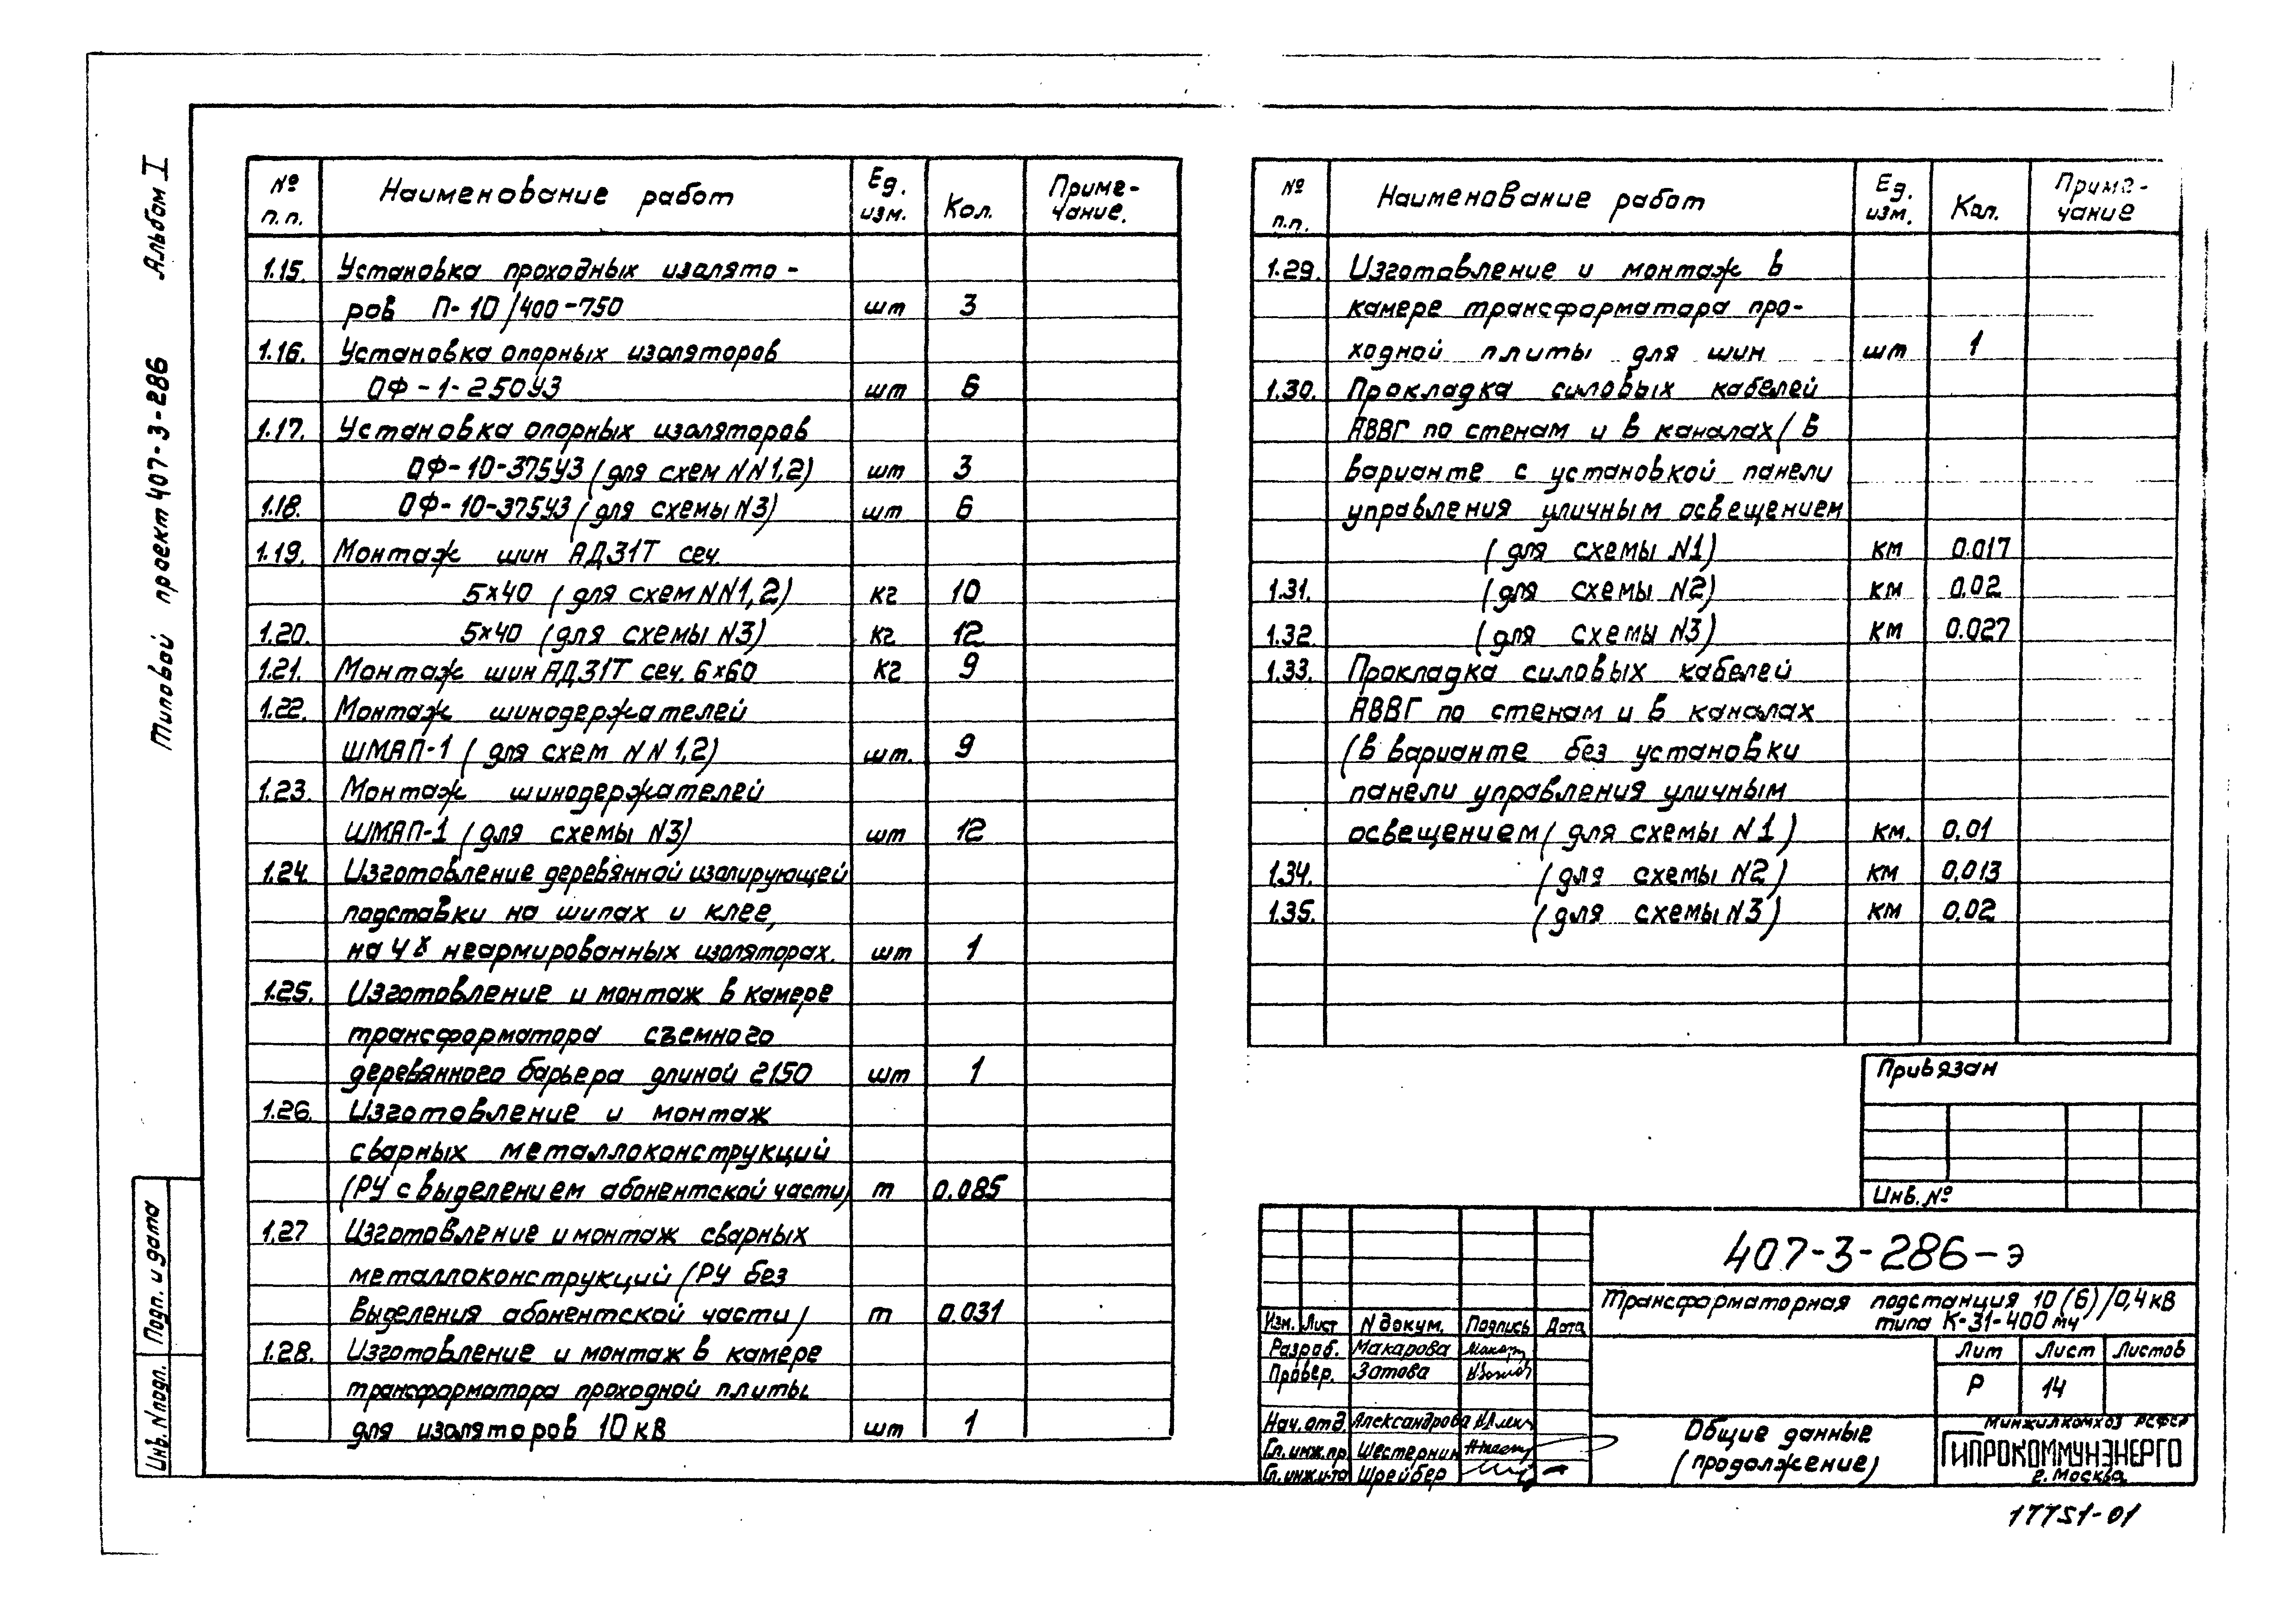 Типовой проект 407-3-286 Альбом I
№ п.п. Наименование работ Ед. изм. Кол. Приме-чание.
1.15. Установка проходных изолято-
ров П-10/400-750 шт 3
1.16. Установка опорных изоляторов
ОФ-1-250У3 шт 6
1.17. Установка опорных изоляторов
ОФ-10-375У3 (для схем NN1,2) шт 3
1.18. ОФ-10-375У3 (для схемы N3) шт 6
1.19. Монтаж шин АД31Т сеч.
5х40 (для схем NN1,2) кг 10
1.20. 5х40 (для схемы N3) кг 12
1.21. Монтаж шин АД31Т сеч. 6х60 кг 9
1.22. Монтаж шинодержателей
ШМАП-1 (для схем NN1,2) шт. 9
1.23. Монтаж шинодержателей
ШМАП-1 (для схемы N3) шт 12
1.24. Изготовление деревянной изолирующей
подставки на шипах и клее,
на 4х неармированных изоляторах. шт 1
1.25. Изготовление и монтаж в камере
трансформатора съемного
деревянного барьера длиной 2150 шт 1
1.26. Изготовление и монтаж
сварных металлоконструкций
(РУ с выделением абонентской части) т 0.085
1.27 Изготовление и монтаж сварных
металлоконструкций (РУ без
выделения абонентской части) т 0.031
1.28. Изготовление и монтаж в камере
трансформатора проходной плиты
для изоляторов 10кв шт 1
№ п.п. Наименование работ Ед. изм. Кол. Приме-чание
1.29. Изготовление и монтаж в
камере трансформатора про-
ходной плиты для шин шт 1
1.30. Прокладка силовых кабелей
АВВГ по стенам и в каналах (в
варианте с установкой панели
управления уличным освещением
(для схемы N1) км 0.017
1.31. (для схемы N2) км 0.02
1.32. (для схемы N3) км 0.027
1.33. Прокладка силовых кабелей
АВВГ по стенам и в каналах
(в варианте без установки
панели управления уличным
освещением (для схемы N1) км. 0.01
1.34. (для схемы N2) км 0.013
1.35. (для схемы N3) км 0.02
Привязан
Инв. №
407-3-286-э
Трансформаторная подстанция 10(6)/0,4кв
типа К-31-400 мч
Изм. Лист N докум. Подпись Дата
Разраб. Макарова
Провер. Затова
Нач. отд Александрова
Гл. инж.пр. Шестернин
Гл. инж.и-та Шрейбер
Лит Лист Листов
Р 14
Общие данные
(продолжение)
Минжилкомхоз РСФСР
ГИПРОКОММУНЭНЕРГО
г. Москва
Инв. N подл. Подп. и дата
17751-01